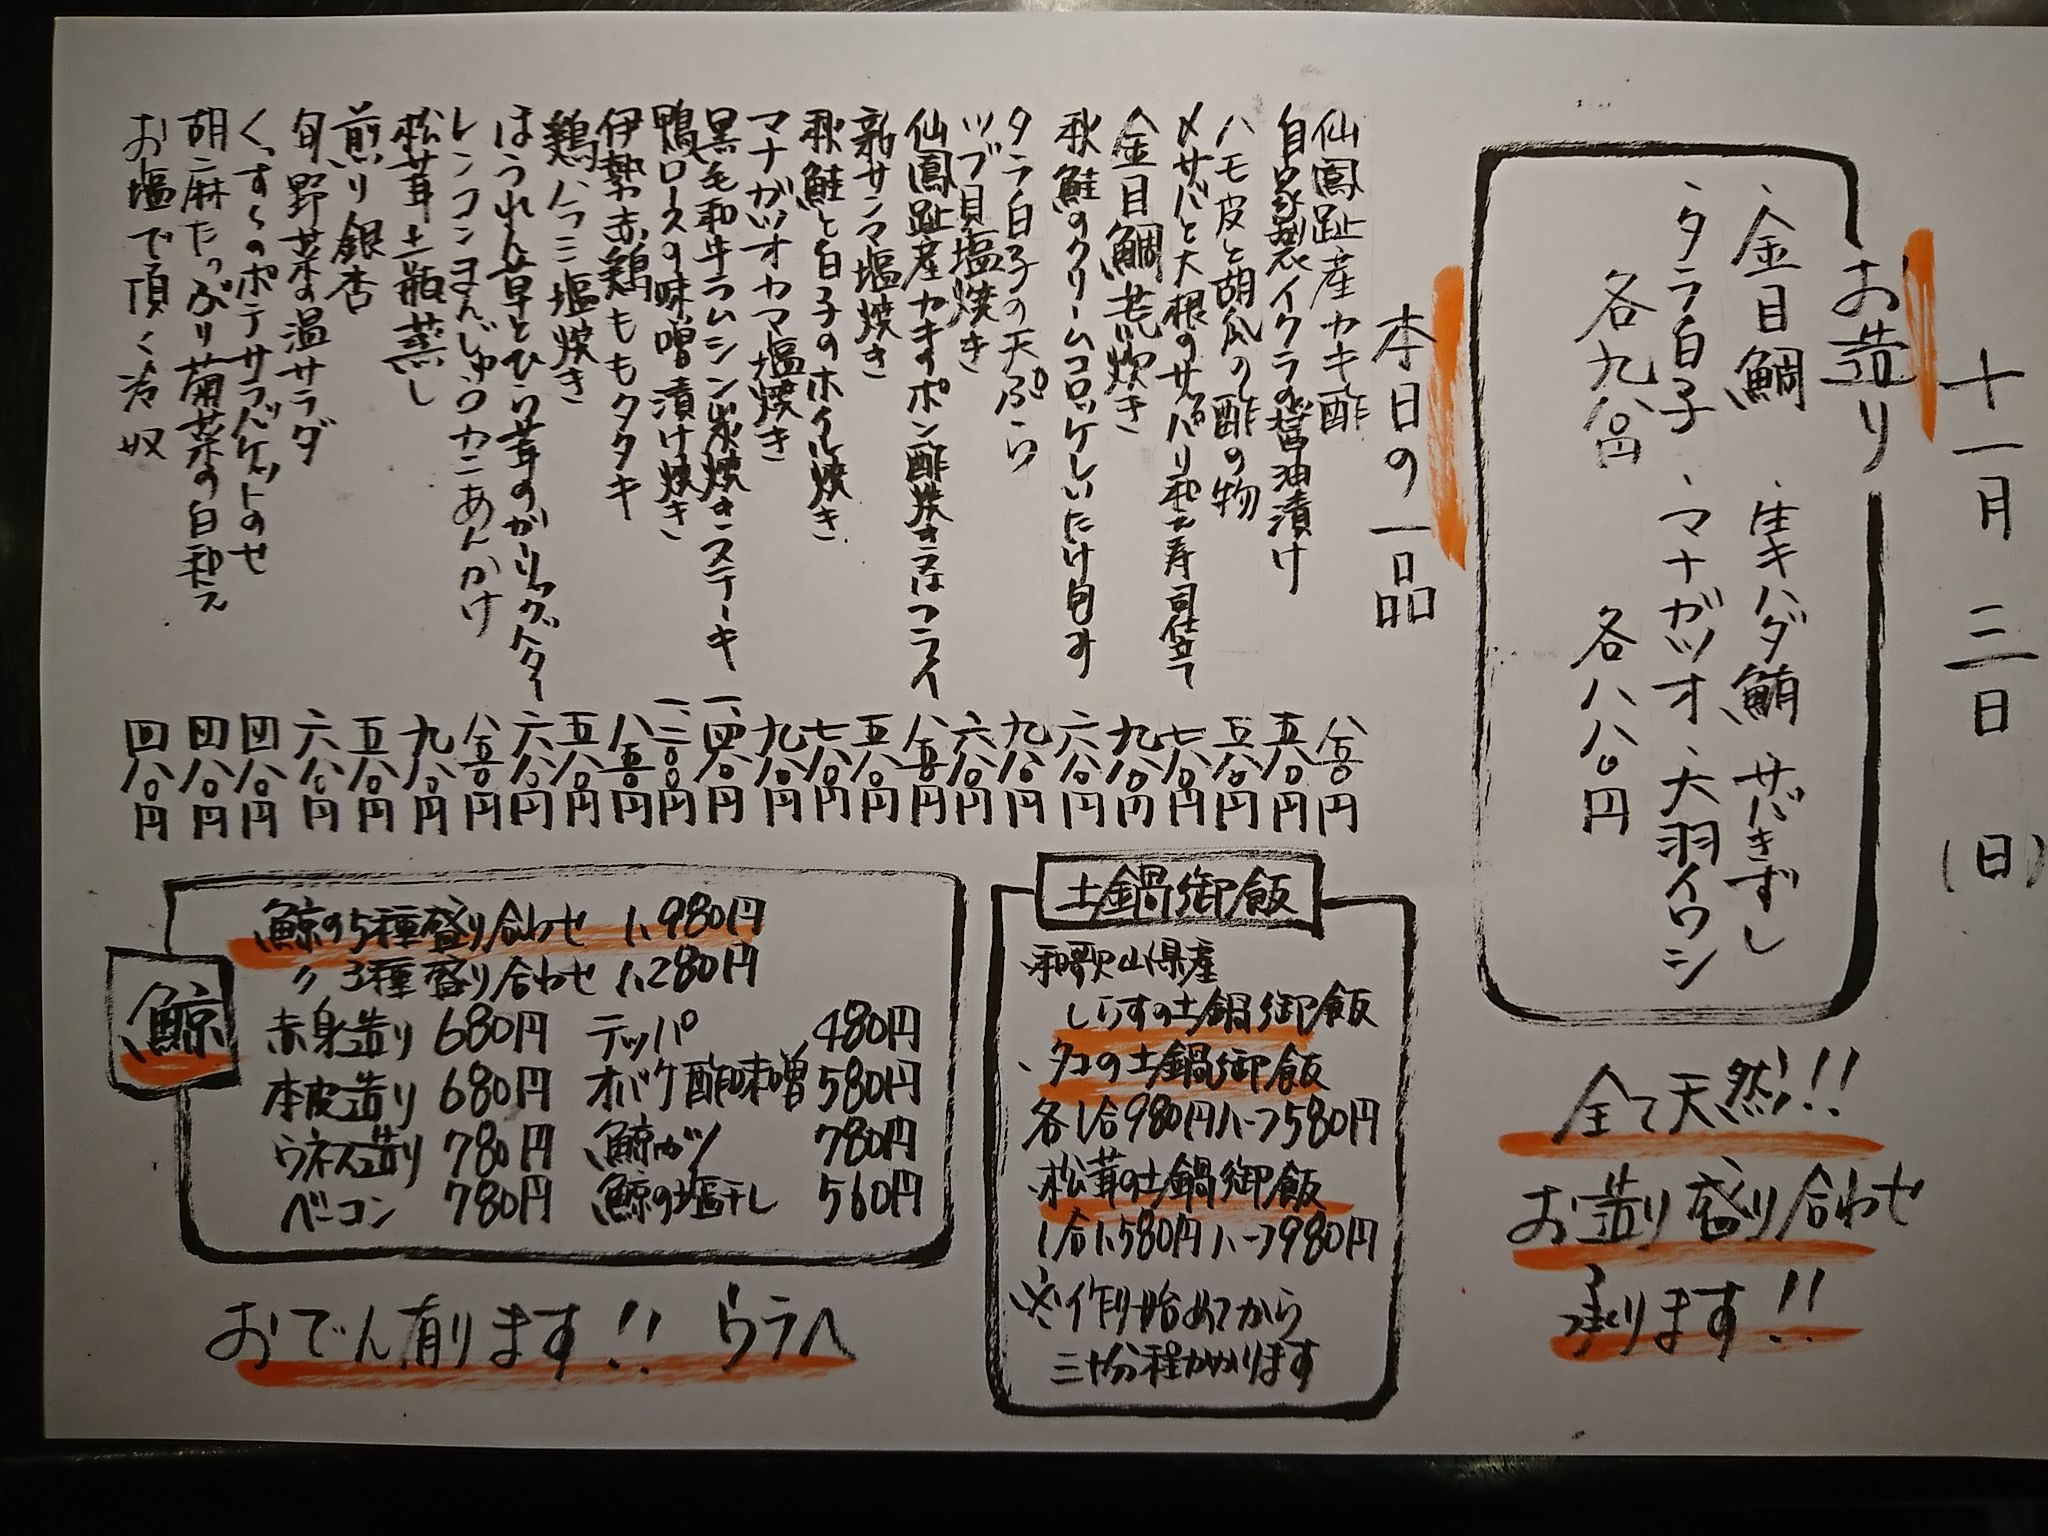 十一月三日(日)
お造り
・金目鯛 ・生キハダ鮪 ・サバきずし
・タラ白子 ・マナガツオ ・大羽イワシ
各九八〇円 各八八〇円
全て天然!!
お造り盛り合わせ
承ります!!
本日の一品
仙鳳趾産カキ酢 八五〇円
自家製イクラの醤油漬け 五八〇円
ハモ皮と胡瓜の酢の物 五八〇円
〆サバと大根のサッパリ和え寿司仕立て 七八〇円
金目鯛荒炊き 九八〇円
秋鮭のクリームコロッケしいたけ包み 六八〇円
タラ白子の天ぷら 九八〇円
ツブ貝塩焼き 六八〇円
仙鳳趾産カキのポン酢焼き又はフライ 八五〇円
新サンマ塩焼き 五八〇円
秋鮭と白子のホイル焼き 七八〇円
マナガツオカマ塩焼き 九八〇円
黒毛和牛ラムシン炭焼きステーキ 一、四八〇円
鴨ロースの味噌漬け焼き 一、二〇〇円
伊勢赤鶏ももタタキ 八五〇円
鶏ハラミ塩焼き 五八〇円
ほうれん草とひら茸のガーリックバター 六八〇円
レンコンまんじゅうカニあんかけ 八五〇円
松茸土瓶蒸し 九八〇円
煎り銀杏 五八〇円
旬野菜の温サラダ 六八〇円
くっすくのポテサラバケットのせ 四八〇円
胡麻たっぷり菊菜の白和え 四八〇円
お塩で頂く冷奴 四八〇円
土鍋御飯
・和歌山県産
しらすの土鍋御飯
・タコの土鍋御飯
各1合980円ハーフ580円
・松茸の土鍋御飯
1合1,580円ハーフ980円
※作り始めてから
三十分程かかります
鯨
鯨の5種盛り合わせ 1,980円
〃 3種盛り合わせ 1,280円
赤身造り 680円 テッパ 480円
本皮造り 680円 オバケ酢味噌 580円
ウネス造り 780円 鯨カツ 780円
ベーコン 780円 鯨の塩干し 560円
おでん有ります!! ウラへ